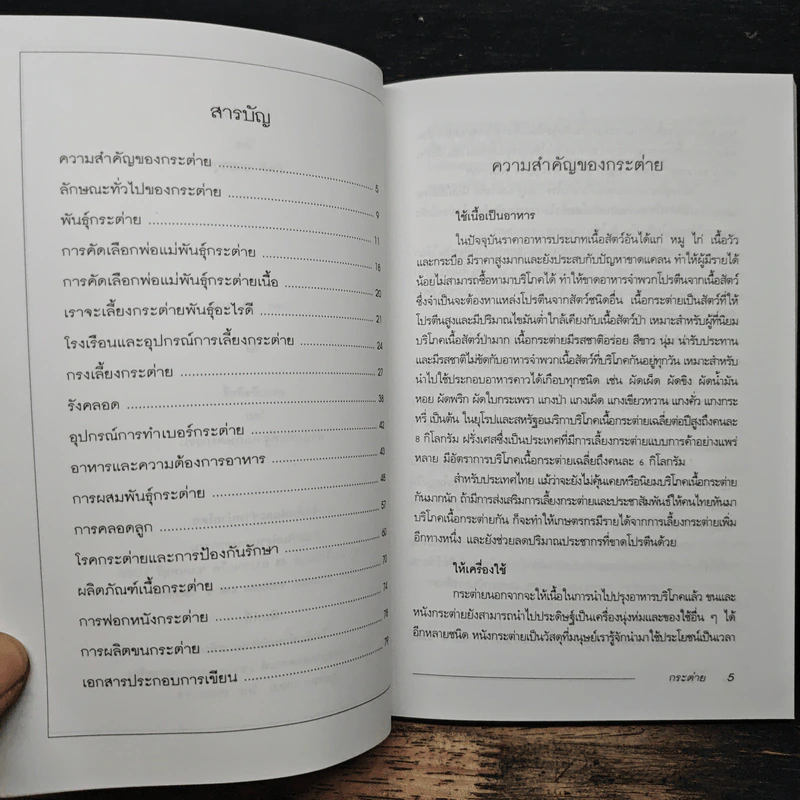 สารบัญ
ความสำคัญของกระต่าย ........ 5
ลักษณะทั่วไปของกระต่าย ........ 9
พันธุ์กระต่าย ........ 11
การคัดเลือกพ่อแม่พันธุ์กระต่าย ........ 18
การคัดเลือกพ่อแม่พันธุ์กระต่ายเนื้อ ........ 20
เราจะเลี้ยงกระต่ายพันธุ์อะไรดี ........ 21
โรงเรือนและอุปกรณ์การเลี้ยงกระต่าย ........ 24
กรงเลี้ยงกระต่าย ........ 27
รังคลอด ........ 38
อุปกรณ์การทำเบอร์กระต่าย ........ 42
อาหารและความต้องการอาหาร ........ 43
การผสมพันธุ์กระต่าย ........ 48
การคลอดลูก ........ 57
โรคกระต่ายและการป้องกันรักษา ........ 60
ผลิตภัณฑ์เนื้อกระต่าย ........ 70
การฟอกหนังกระต่าย ........ 74
การผลิตขนกระต่าย ........ 78
เอกสารประกอบการเขียน ........ 79
ความสำคัญของกระต่าย
ใช้เนื้อเป็นอาหาร
ในปัจจุบันราคาอาหารประเภทเนื้อสัตว์อันได้แก่ หมู ไก่ เนื้อวัว
และกระบือ มีราคาสูงมากและยังประสบกับปัญหาขาดแคลน ทำให้ผู้มีรายได้
น้อยไม่สามารถซื้อหามาบริโภคได้ ทำให้ขาดอาหารจำพวกโปรตีนจากเนื้อสัตว์
ซึ่งจำเป็นจะต้องหาแหล่งโปรตีนจากสัตว์ชนิดอื่น เนื้อกระต่ายเป็นสัตว์ที่ให้
โปรตีนสูงและมีปริมาณไขมันต่ำใกล้เคียงกับเนื้อสัตว์ป่า เหมาะสำหรับผู้ที่นิยม
บริโภคเนื้อสัตว์ป่ามาก เนื้อกระต่ายมีรสชาติอร่อย สีขาว นุ่ม น่ารับประทาน
และมีรสชาติไม่ขัดกับอาหารจำพวกเนื้อสัตว์ที่บริโภคกันอยู่ทุกวัน เหมาะสำหรับ
นำไปใช้ประกอบอาหารคาวได้เกือบทุกชนิด เช่น ผัดเผ็ด ผัดขิง ผัดน้ำมัน
หอย ผัดพริก ผัดใบกระเพรา แกงป่า แกงเผ็ด แกงเขียวหวาน แกงคั่ว แกงกระ
หรี่ เป็นต้น ในยุโรปและสหรัฐอเมริกาบริโภคเนื้อกระต่ายเฉลี่ยต่อปีสูงถึงคนละ
8 กิโลกรัม ฝรั่งเศสซึ่งเป็นประเทศที่มีการเลี้ยงกระต่ายแบบการค้าอย่างแพร่
หลาย มีอัตราการบริโภคเนื้อกระต่ายเฉลี่ยถึงคนละ 6 กิโลกรัม
สำหรับประเทศไทย แม้ว่าจะยังไม่คุ้นเคยหรือนิยมบริโภคเนื้อกระต่าย
กันมากนัก ถ้ามีการส่งเสริมการเลี้ยงกระต่ายและประชาสัมพันธ์ให้คนไทยหันมา
บริโภคเนื้อกระต่ายกัน ก็จะทำให้เกษตรกรมีรายได้จากการเลี้ยงกระต่ายเพิ่ม
อีกทางหนึ่ง และยังช่วยลดปริมาณประชากรที่ขาดโปรตีนด้วย
ให้เครื่องใช้
กระต่ายนอกจากจะให้เนื้อในการนำไปปรุงอาหารบริโภคแล้ว ขนและ
หนังกระต่ายยังสามารถนำไปประดิษฐ์เป็นเครื่องนุ่งห่มและของใช้อื่น ๆ ได้
อีกหลายชนิด หนังกระต่ายเป็นวัสดุที่มนุษย์เรารู้จักนำมาใช้ประโยชน์เป็นเวลา
กระต่าย 5